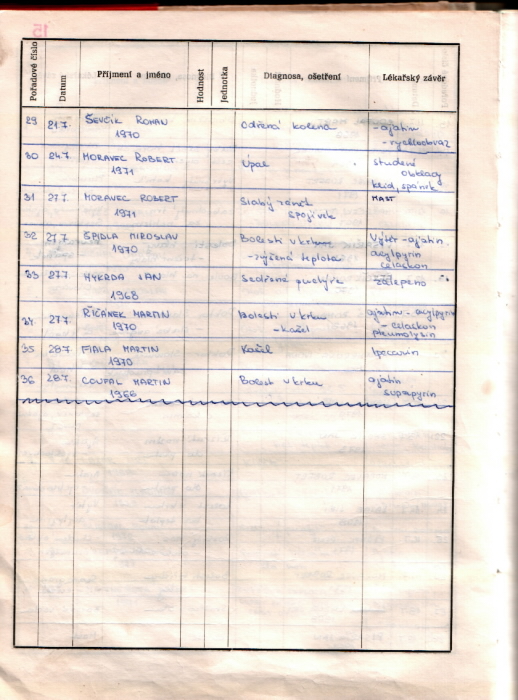 15
Pořadové číslo Datum Příjmení a jméno Hodnost Jednotka Diagnosa, ošetření Lékařský závěr
29 21.7. ŠEVČÍK ROMAN odřená kolena - ajatin
1970 - rychloobvaz
30 24.7. MORAVEC ROBERT Úpal studené
1971 obklady
klid, spánek
31 27.7. MORAVEC ROBERT Slabý zánět MAST
1971 spojivek
32 27.7. ŠPIDLA MIROSLAV Bolesti v krku Výtěr - ajatin
1970 - zvýšená teplota acylpyrin
celaskon
33 27.7. HYKRDA JAN Sedřené puchýře zalepeno
1968
34 27.7. ŘÍČÁNEK MARTIN Bolesti v krku ajatin - acylpyrin
1970 - kašel - celaskon
pleumolysin
35 28.7. FIALA MARTIN Kašel Ipecarin
1970
36 28.7. COUFAL MARTIN Bolesti v krku ajatin
1966 superpyrin